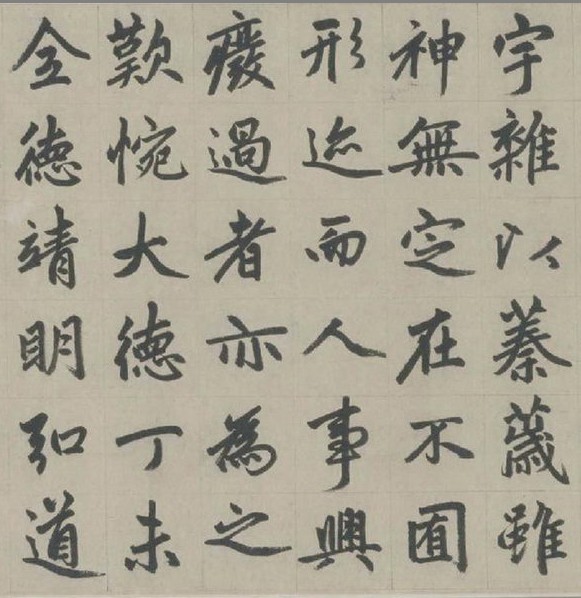 宇雜以蓁薉雖
神無㝎在不囿
形迹而人事興
廢過者亦為之
歎惋大德丁未
全德靖明弘道